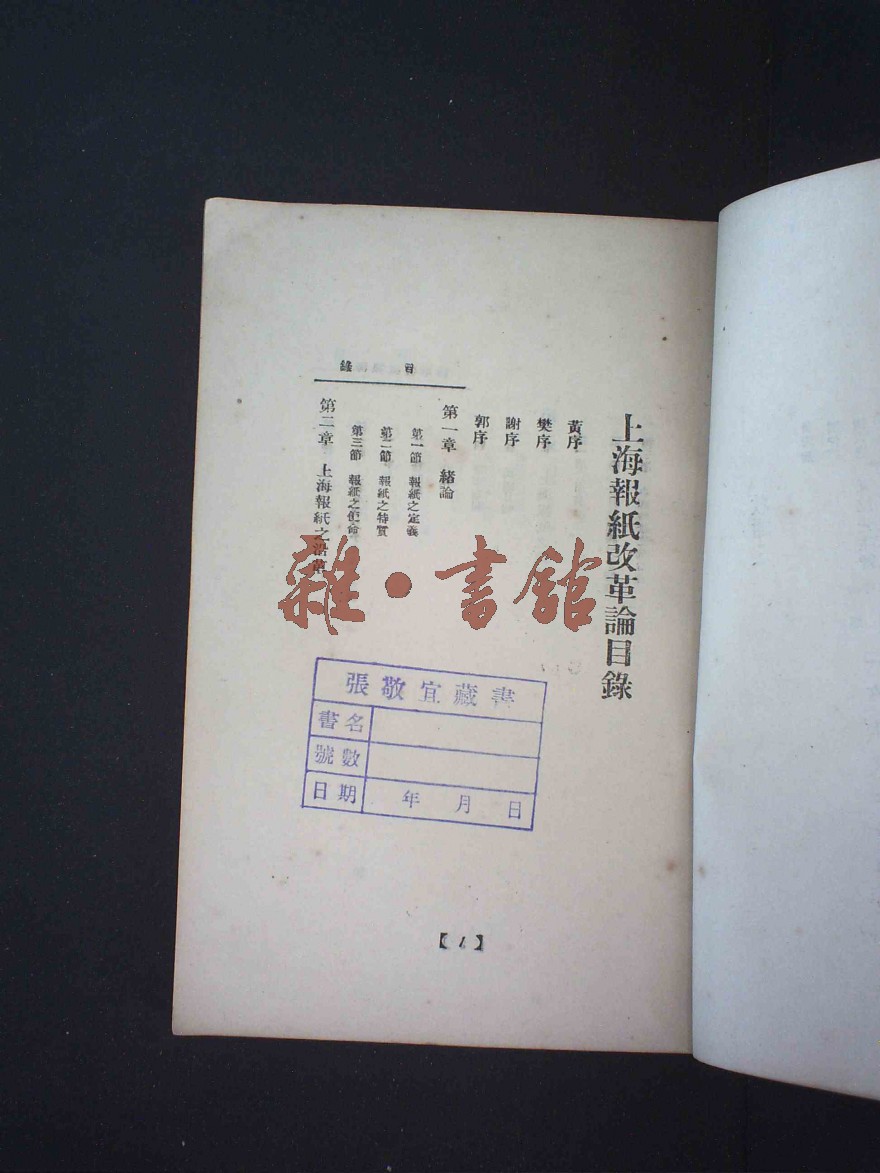 上海報紙改革論目錄
黃序
樊序
謝序
郭序
第一章 緒論
第一節 報紙之定義
第二節 報紙之特質
第三節 報紙之使命
第二章 上海報紙之沿革
目錄
雜·書館
張敬宜藏書
書名
號數
日期 年 月 日
【1】